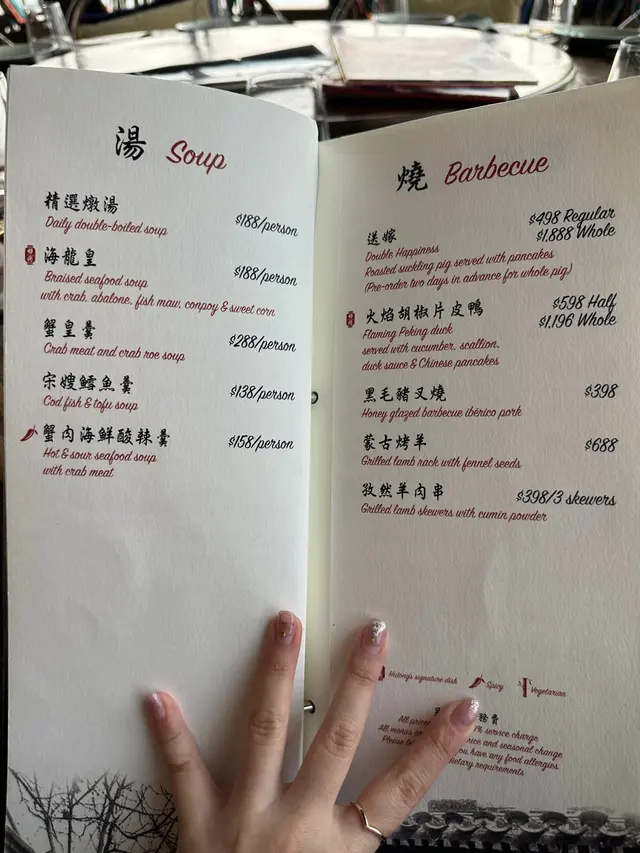 湯 Soup
精選燉湯
Daily double-boiled soup
$188/person
海龍皇
Braised seafood soup
with crab, abalone, fish maw, conpoy & sweet corn
$188/person
蟹皇羹
Crab meat and crab roe soup
$288/person
宋嫂鱈魚羹
Cod fish & tofu soup
$138/person
蟹肉海鮮酸辣羹
Hot & sour seafood soup
with crab meat
$158/person
燒 Barbecue
送嫁
$498 Regular
$1,888 Whole
Double Happiness
Roasted suckling pig served with pancakes
(Pre-order two days in advance for whole pig)
火焰胡椒片皮鴨
$598 Half
$1,196 Whole
Flaming Peking duck
served with cucumber, scallion,
duck sauce & Chinese pancakes
黑毛豬叉燒
$398
Honey glazed barbecue ibérico pork
蒙古烤羊
$688
Grilled lamb rack with fennel seeds
孜然羊肉串
$398/3 skewers
Grilled lamb skewers with cumin powder
Hutong's signature dish
Spicy
Vegetarian
All % service charge
All menus and seasonal change
Please you have any food allergies
dietary requirements